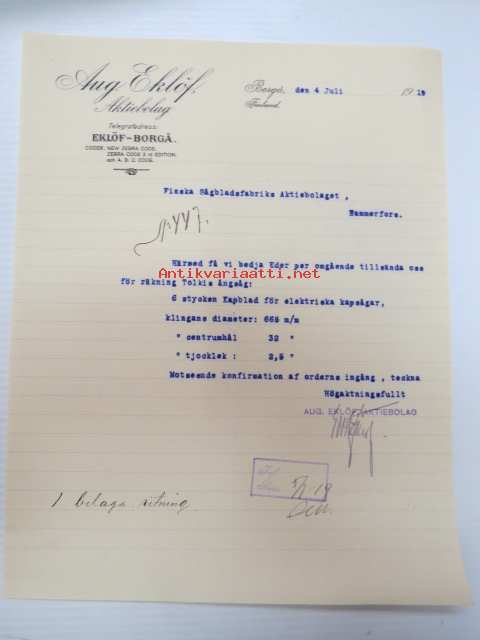 Aug. Eklöf.
Aktiebolag
Borgå, den 4 Juli 1919
Finland.
Telegrafadress:
EKLÖF-BORGÅ.
CODES: NEW ZEBRA CODE.
ZEBRA CODE 3 rd EDITION.
och A. B. C. CODE.
Finska Sågbladsfabriks Aktiebolaget,
Hammerfors.
Härmed få vi bedja Eder per omgående tillsända oss
Antikvariaatti.net
för räkning Tolkis ångsåg:
6 stycken Kapblad för elektriska kapsågar,
klingans diameter: 665 m/m
" centrumhål 32 "
" tjocklek : 2,5 "
Motseende konfirmation af orderns ingång, teckna
Högaktningsfullt
AUG. EKLÖF AKTIEBOLAG
5/7 19
1 belaga ritning